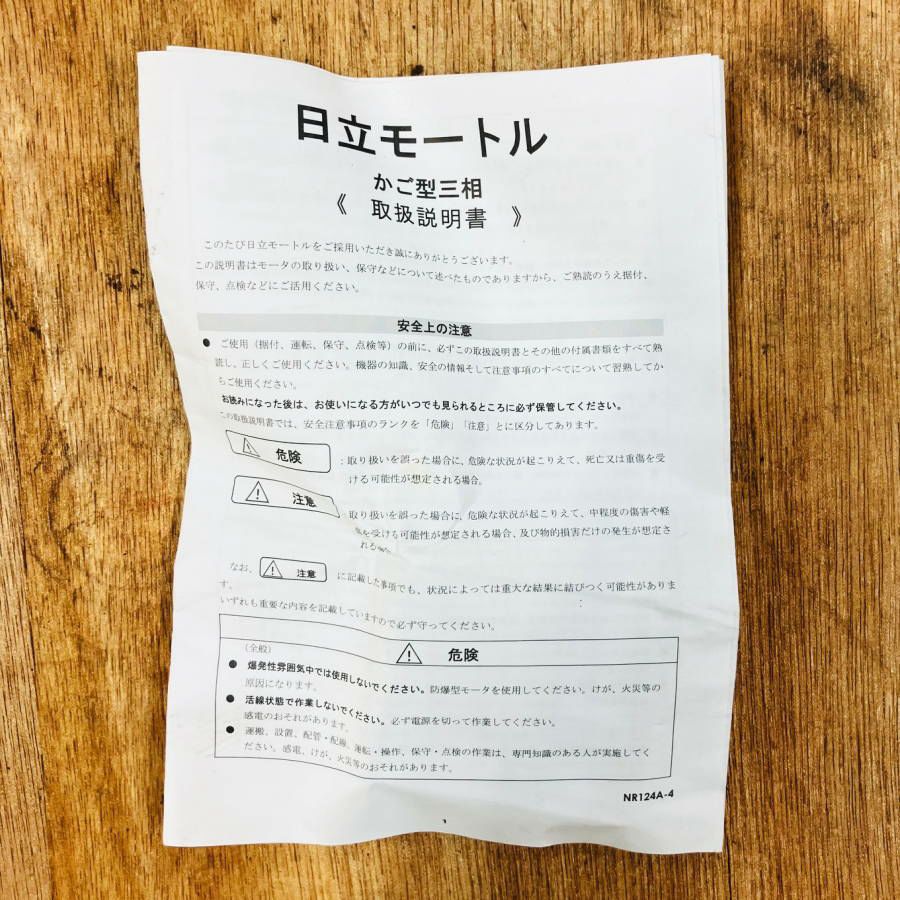 日立モートル
かご型三相
《 取扱説明書 》
このたび日立モートルをご採用いただき誠にありがとうございます。
この説明書はモータの取り扱い、保守などについて述べたものでありますから、ご熟読のうえ据付、
保守、点検などにご活用ください。
安全上の注意
● ご使用（据付、運転、保守、点検等）の前に、必ずこの取扱説明書とその他の付属書類をすべて熟
読し、正しくご使用ください。機器の知識、安全の情報そして注意事項のすべてについて習熟してか
らご使用ください。
お読みになった後は、お使いになる方がいつでも見られるところに必ず保管してください。
この取扱説明書では、安全注意事項のランクを「危険」「注意」とに区分してあります。
危険 ：取り扱いを誤った場合に、危険な状況が起こりえて、死亡又は重傷を受
ける可能性が想定される場合。
注意 ：取り扱いを誤った場合に、危険な状況が起こりえて、中程度の傷害や軽
傷を受ける可能性が想定される場合、及び物的損害だけの発生が想定さ
れる
なお、 注意 に記載した事項でも、状況によっては重大な結果に結びつく可能性がありま
す。
いずれも重要な内容を記載していますので必ず守ってください。
危険
（全般）
● 爆発性雰囲気中では使用しないでください。防爆型モータを使用してください。けが、火災等の
原因になります。
● 活線状態で作業しないでください。必ず電源を切って作業してください。
感電のおそれがあります。
● 運搬、設置、配管・配線、運転・操作、保守・点検の作業は、専門知識のある人が実施してく
ださい。感電、けが、火災等のおそれがあります。
NR124A-4
1